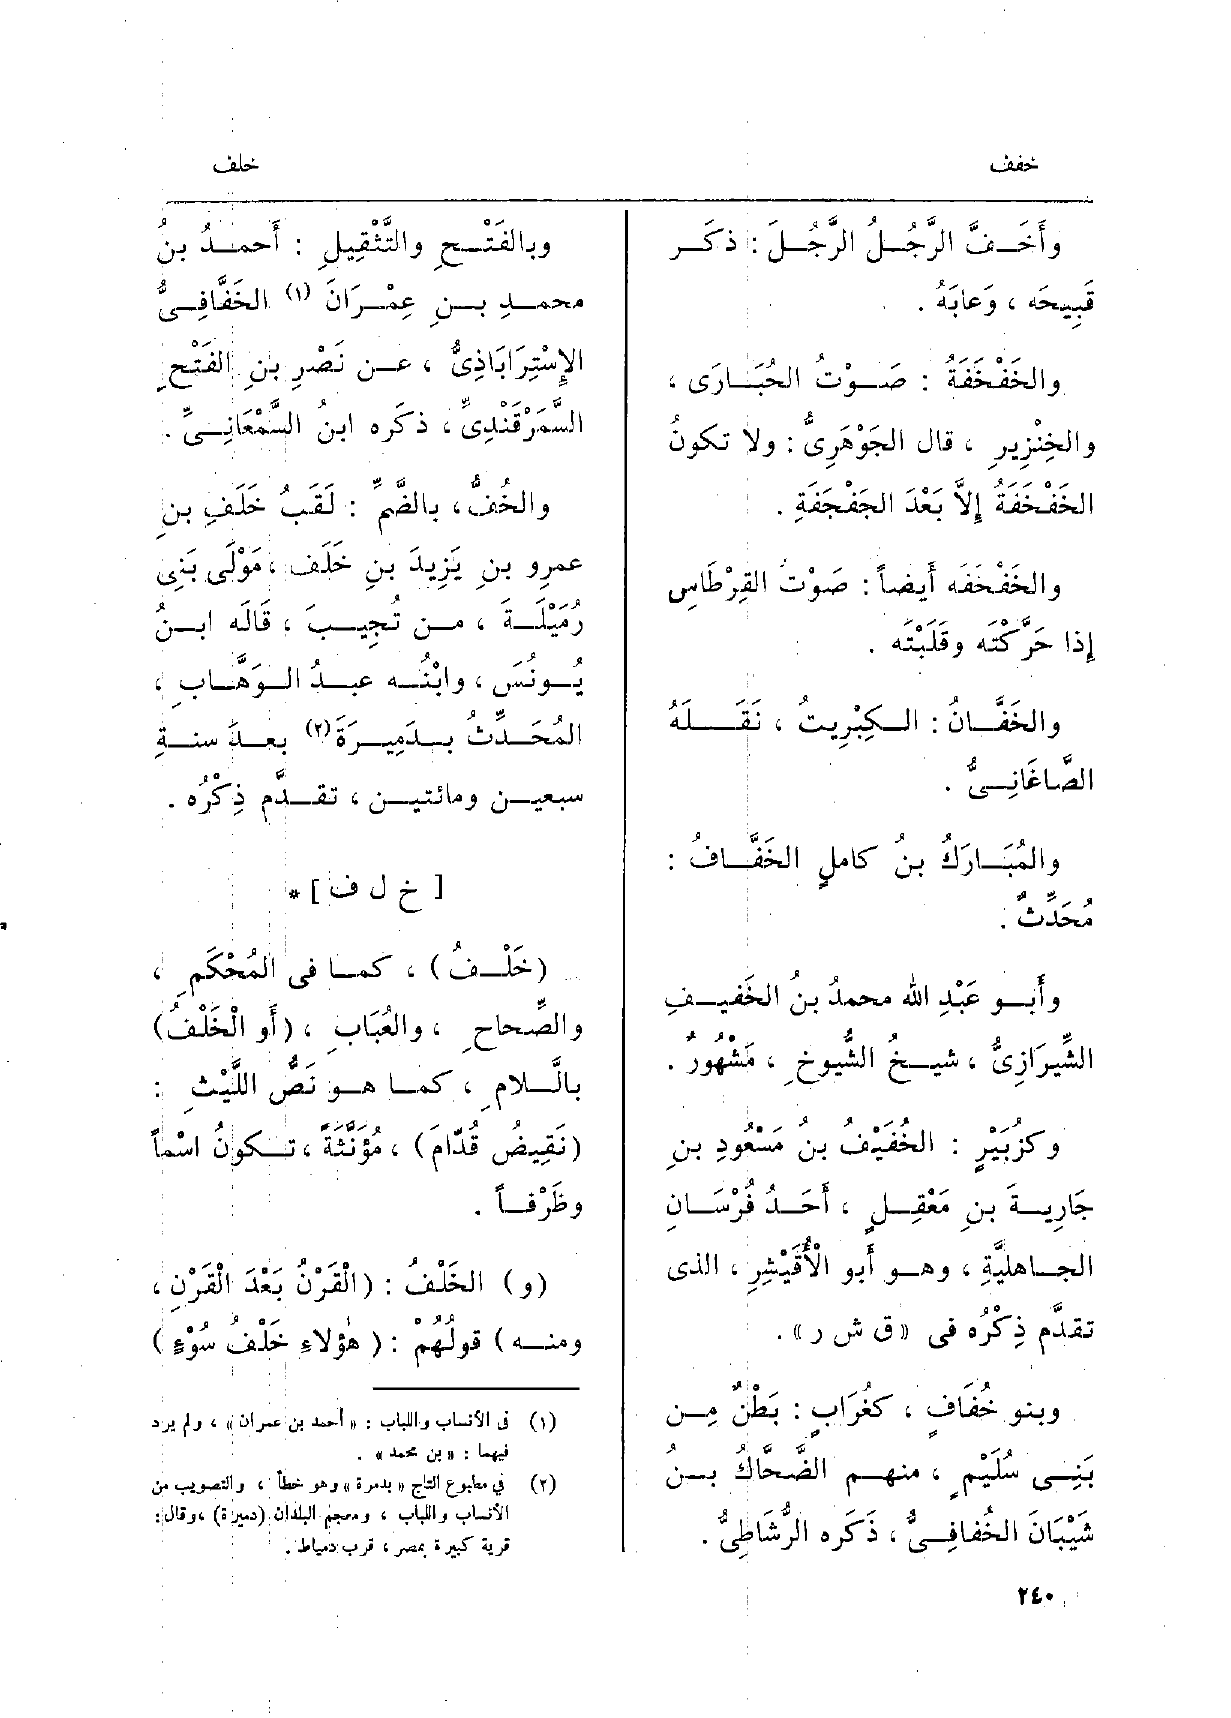 خفف
خلف
وأَخَـفَّ الرَّجُـلُ الرَّجُـلَ : ذكَـر
قَبِيحَه ، وَعابَهُ .
والخَفْخَفَةُ : صَـوْتُ الحُبَـارَى ،
والخِنْزِيرِ ، قال الجَوْهَرِىُّ : ولا تكونُ
الخَفْخَفَةُ إِلاَّ بَعْدَ الجَفْجَفَةِ .
والخَفْخَفَه أَيضاً : صَوْتُ القِرْطَاسِ
إِذا حَرَّكْتَه وقَلَبْتَه .
والخَفَّـانُ : الـكِبْرِيتُ ، نَقَـلَهُ
الصَّاغَانِـىُّ .
والمُبَـارَكُ بنُ كاملٍ الخَفَّـافُ :
مُحَدِّثٌ .
وأَبـو عَبْدِ الله محمدُ بنُ الخَفيـفِ
الشِّيرَازِىُّ ، شيـخُ الشُّيوخِ ، مَشْهُورٌ .
وكزُبَيْرٍ : الخُفَيْف بنُ مَسْعُودِ بنِ
جَارِيـةَ بنِ مَعْقِـلٍ ، أَحَـدُ فُرْسَـانِ
الجـاهليَّةِ ، وهـو أَبو الْأُقَيْشِرِ ، الذى
تقدَّم ذِكْرُه فى «ق ش ر» .
وبنو خُفَافٍ ، كغُرَابٍ : بَطْنٌ مِـن
بَنِـى سُلَيْمٍ ، منهـم الضَّحَّاكُ بـنُ
شَيْبَانَ الخُفافِـىُّ ، ذَكَره الرُّشَاطِىُّ .
وبالفَتْـحِ والتَّثْقِيلِ : أَحمـدُ بنُ
محمـدِ بـنِ عِمْـرَانَ (١) الخَفَّافِـىُّ
الإِسْتِرَابَاذِىُّ ، عـن نَصْرِ بنِ الفَتْحِ
السَّمَرْقَنْدِىِّ ، ذكَره ابنُ السَّمْعَانِـىِّ .
والخُفُّ ، بالضَّمِّ : لَقَبُ خَلَفِ بنِ
عمرِو بنِ يَزِيدَ بنِ خَلَف ، مَوْلَى بَنِى
رُمَيْلَـةَ ، مـن تُجِيـبَ ، قَالَه ابـنُ
يُـونُسَ ، وابْنُـه عبـدُ الـوَهَّـابِ ،
المُحَدِّثُ بـدَمِيـرَةَ (٢) بعـدَ سنـةِ
سبعيـن ومائتيـن ، تقـدَّم ذِكْرُه .
[ خ ل ف ] *
(خَلْـفُ) ، كمـا فى المُحْكَمِ ،
والصِّحاحِ ، والعُبَابِ ، (أَو الْخَلْفُ)
بالَّـلامِ ، كمـا هـو نَصُّ اللَّيْثِ :
(نَقِيضُ قُدَّامَ) ، مُؤَنَّثَةٌ ، تـكونُ اسْماً
وظَرْفـاً .
(و) الخَلْفُ : (الْقَرْنُ بَعْدَ الْقَرْنِ ،
ومنـه) قولُهُمْ : (هٰؤلاءِ خَلْفُ سُوْءٍ)
(١) فى الأنساب واللباب : «أحمد بن عمران» ، ولم يرد
فيهما : «بن محمد» .
(٢) في مطبوع التاج «بدمرة» وهو خطأ ، والتصويب من
الأنساب واللباب ، ومعجم البلدان (دميرة) ، وقال :
قرية كبيرة بمصر ، قرب دمياط .
٢٤٠